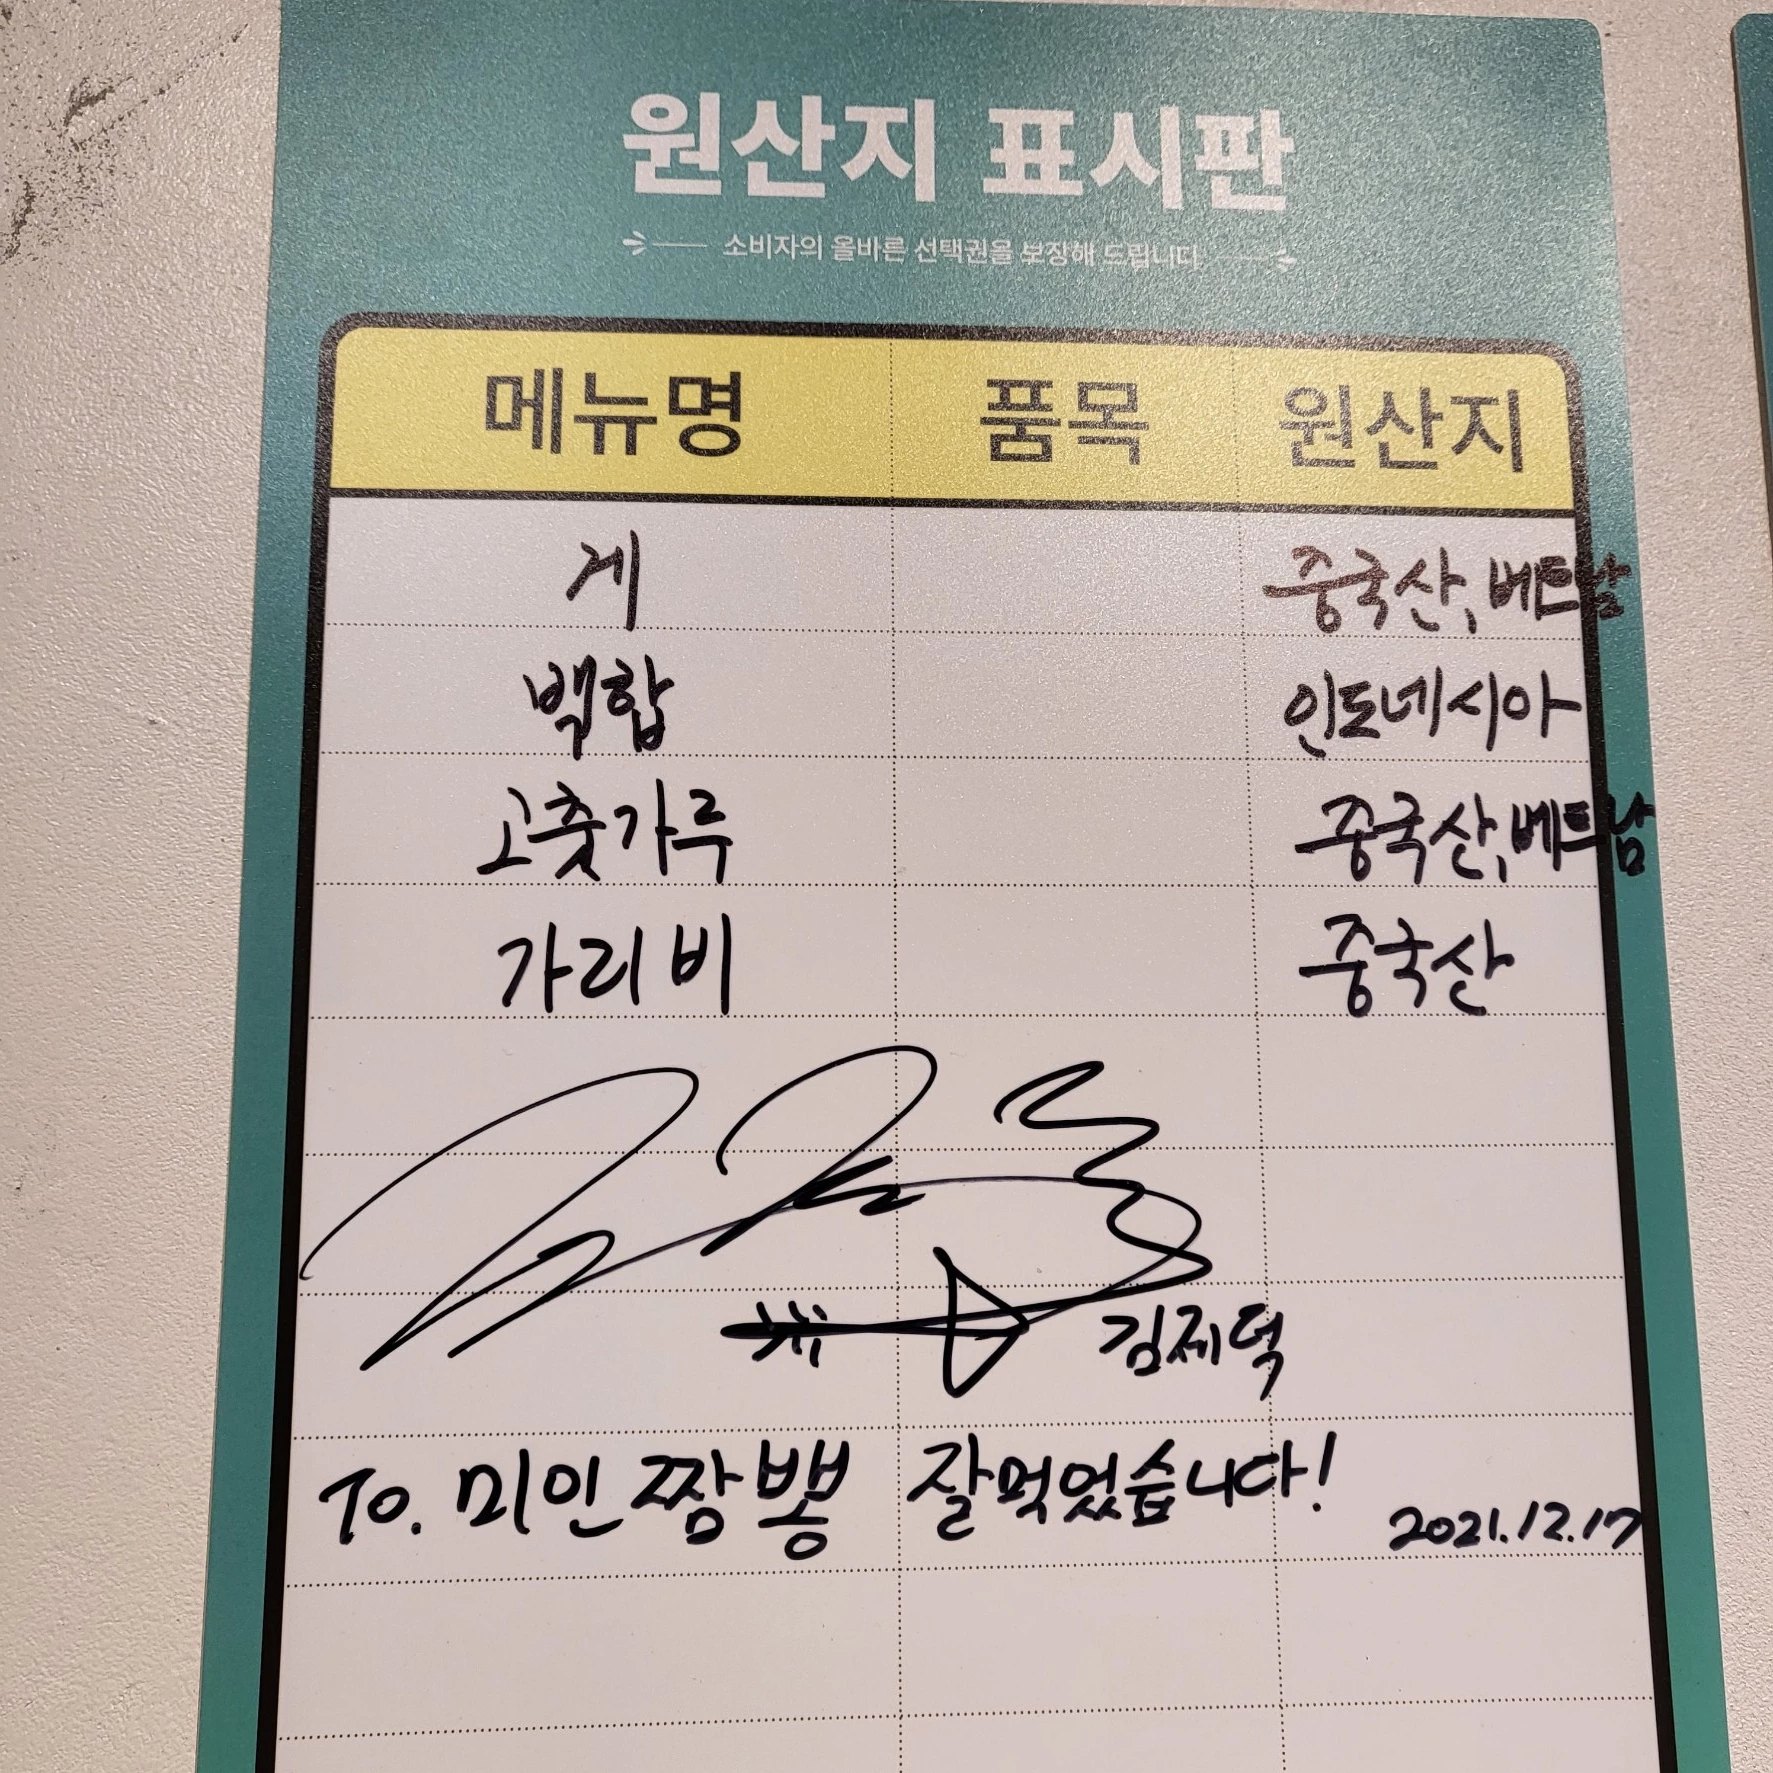 원산지 표시판
소비자의 올바른 선택권을 보장해 드립니다
메뉴명 품목 원산지
게 중국산, 베트남
백합 인도네시아
고춧가루 중국산, 베트남
가리비 중국산
김제덕
To. 미인짬뽕 잘먹었습니다!
2021.12.17